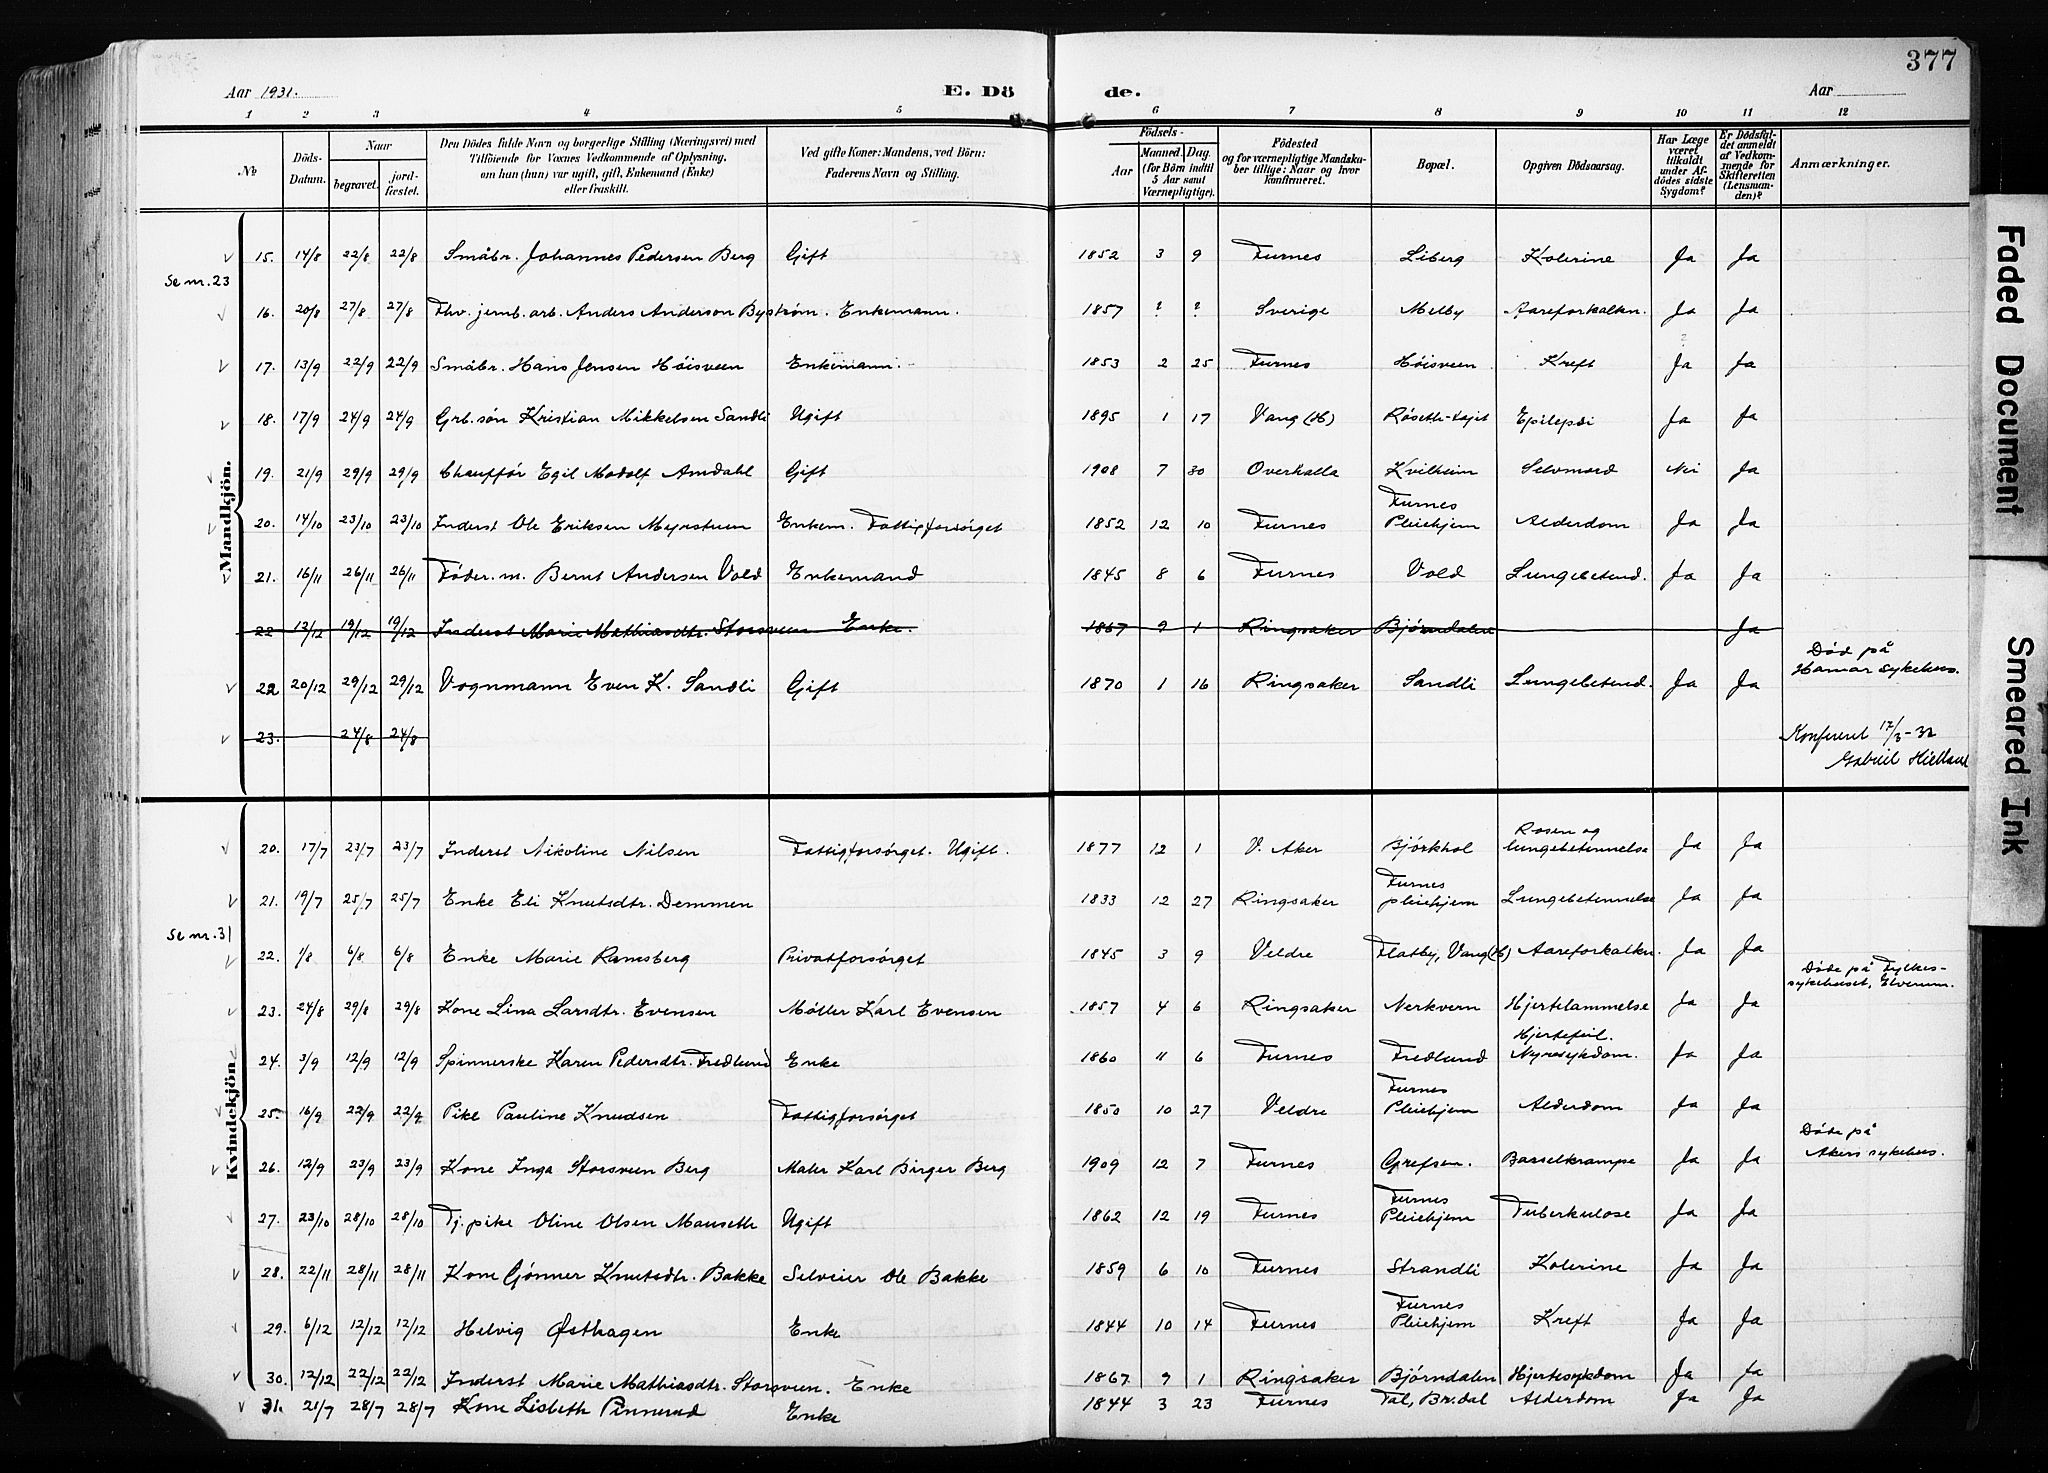 377
Aar 1931. E. Dö de. Aar
1 2 3 4 5 6 7 8 9 10 11 12
No
Döds-Datum.
Naar begravet. jordfæstet.
Den Dödes fulde Navn og borgerlige Stilling (Næringsvei) med Tilföiende for Voxnes Vedkommende af Oplysning, om han (hun) var ugift, gift, Enkemand (Enke) eller fraskilt.
Ved gifte Koner: Mandens, ved Börn: Faderens Navn og Stilling.
Födsels- Aar Maaned. Dag. (for Börn indtil 5 Aar samt Værnepligtige).
Födested og for værnepligtige Mandskaber tillige: Naar og hvor konfirmeret.
Bopæl.
Opgiven Dödsaarsag.
Har Læge været tilkaldt under Afdödes sidste Sygdom?
Er Dödsfaldet anmeldt af Vedkommende for Skifteretten (Lensmanden)?
Anmærkninger.
Mandkjön.
15. 14/8 22/8 22/8 Småbr. Johannes Pedersen Berg Gift 1852 3 9 Furnes Liberg Kolerine Ja Ja
Se nr. 23
16. 20/8 27/8 27/8 Fhv. jernb. arb. Anders Anderson Byström. Enkemann. 1857 ? ? Sverige Melby Aareforkalkn. Ja Ja
17. 13/9 22/9 22/9 Småbr. Hans Jensen Høisveen Enkemann. 1853 2 25 Furnes Høisveen Kreft Ja Ja
18. 17/9 24/9 24/9 Grb. søn Kristian Mikkelsen Sandli Ugift 1895 1 17 Vang (H) Røseth- Epilepsi Ja Ja
19. 21/9 29/9 29/9 Chauffør Egil Modolf Amdahl Gift 1908 7 30 Overhalla Kvilheim Selvmord Nei Ja
20. 14/10 23/10 23/10 Inderst Ole Eriksen Myrstuen Enkem. Fattigforsørget 1852 12 10 Furnes Furnes Pleiehjem Alderdom Ja Ja
21. 16/11 26/11 26/11 Føder. m. Bernt Andersen Vold Enkemand 1845 8 6 Furnes Vold Lungebetend. Ja Ja
22 12/12 19/12 19/12 Inderst Marie Mathiasdtr. Storsveen Enke. 1867 9 1 Ringsaker Bjørndalen Ja
22 20/12 29/12 29/12 Vognmann Even K. Sandli Gift 1870 1 16 Ringsaker Sandli Lungebetend. Ja Ja Død på Hamar sykehus.
23. 24/8 24/8
Konferert 17/3-32
Gabriel Hielland
Kvindekjön.
20. 17/7 23/7 23/7 Inderst Nikoline Nilsen Fattigforsørget. Ugift. 1877 12 1 V. Aker Bjørkhol Rosen og lungebetennelse Ja Ja
21. 19/7 25/7 25/7 Enke Eli Knutsdtr. Demmen 1833 12 27 Ringsaker Furnes pleiehjem Lungebetennelse Ja Ja
Se nr. 31
22. 1/8 6/8 6/8 Enke Marie Ramsberg Privatforsørget 1845 3 9 Veldre Flatby, Vang (H) Aareforkalkn. Ja Ja
23. 24/8 29/8 29/8 Kone Lina Larsdtr. Evensen Møller Karl Evensen 1857 4 6 Ringsaker Nerkvern Hjertelammelse Ja Ja Døde på Fylkes-sykehuset, Elverum.
24. 3/9 12/9 12/9 Spinnerske Karen Pedersdtr. Fredlund Enke 1860 11 6 Furnes Fredlund Hjertefeil. Nyresykdom. Ja Ja
25. 16/9 22/9 22/9 Pike Pauline Knudsen Fattigforsørget 1850 10 27 Veldre Furnes Pleiehjem Alderdom Ja Ja
26. 12/9 23/9 23/9 Kone Inga Storsveen Berg Maler Karl Birger Berg 1909 12 7 Furnes Grefsen. Barselkrampe Ja Ja Døde på Akers sykehus.
27. 23/10 28/10 28/10 Tj. pike Oline Olsen Mauseth Ugift 1862 12 19 Furnes Furnes Pleiehjem Tuberkulose Ja Ja
28. 22/11 28/11 28/11 Kone Gjønner Knutsdtr. Bakke Selveier Ole Bakke 1859 6 10 Furnes Strandli Kolerine Ja Ja
29. 6/12 12/12 12/12 Helvig Østhagen Enke 1844 10 14 Furnes Furnes Pleiehjem Kreft Ja Ja
30. 12/12 22/12 22/12 Inderst Marie Mathiasdtr. Storsveen. Enke 1867 9 1 Ringsaker Bjørndalen Hjertesykdom Ja Ja
31. 21/7 28/7 28/7 Kone Lisbeth Pinnerud Enke 1844 3 23 Furnes Tal, Br.dal Alderdom Ja Ja
Faded Document
Smeared Ink